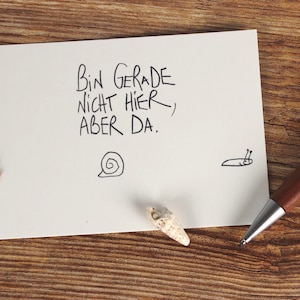 BIN GERADE
NICHT HIER,
ABER DA.